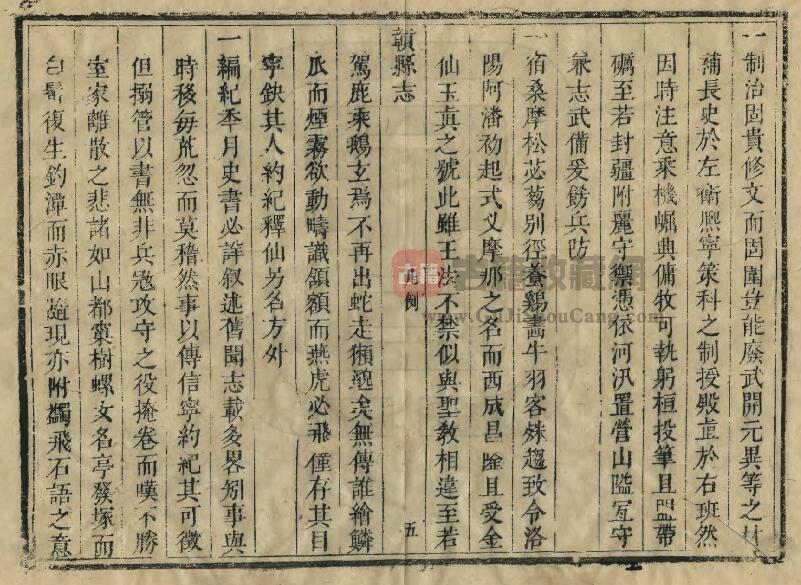 一制治固貴修文而固圉豈能廢武開元異等之材
補長史於左衛熙寧策科之制授殿直於右班然
因時注意乘機崛典傭牧可執躬桓投筆且盟帶
礪至若封疆附麗守禦憑依河汛置營山隘亙守
兼志武備爰飭兵防
一宿桑摩松苾蒭別徑養鷄畫牛羽客殊趨致令洛
陽阿潘初起式叉摩那之名而西成昌隆且受金
仙玉真之號此雖王法不禁似與聖教相違至若
贛縣志
凡例
五
駕鹿乘鵝玄焉不再出蛇走獺逸矣無傳誰繪鱗
爪而煙霧欲動疇識頷額而燕虎必飛僅存其目
寧缺其人約紀釋仙另名方外
一編紀季月史書必詳叙述舊聞志載多畧矧事與
時移每荒忽而莫稽然事以傳信寧約紀其可徵
但搦管以書無非兵寇攻守之役掩卷而嘆不勝
室家離散之悲諸如山都窠樹螺女名亭發塚而
白髯復生釣潭而赤眼隨現亦附蠲飛石語之意
古籍
古籍收藏網
www.GuJiShouCang.com